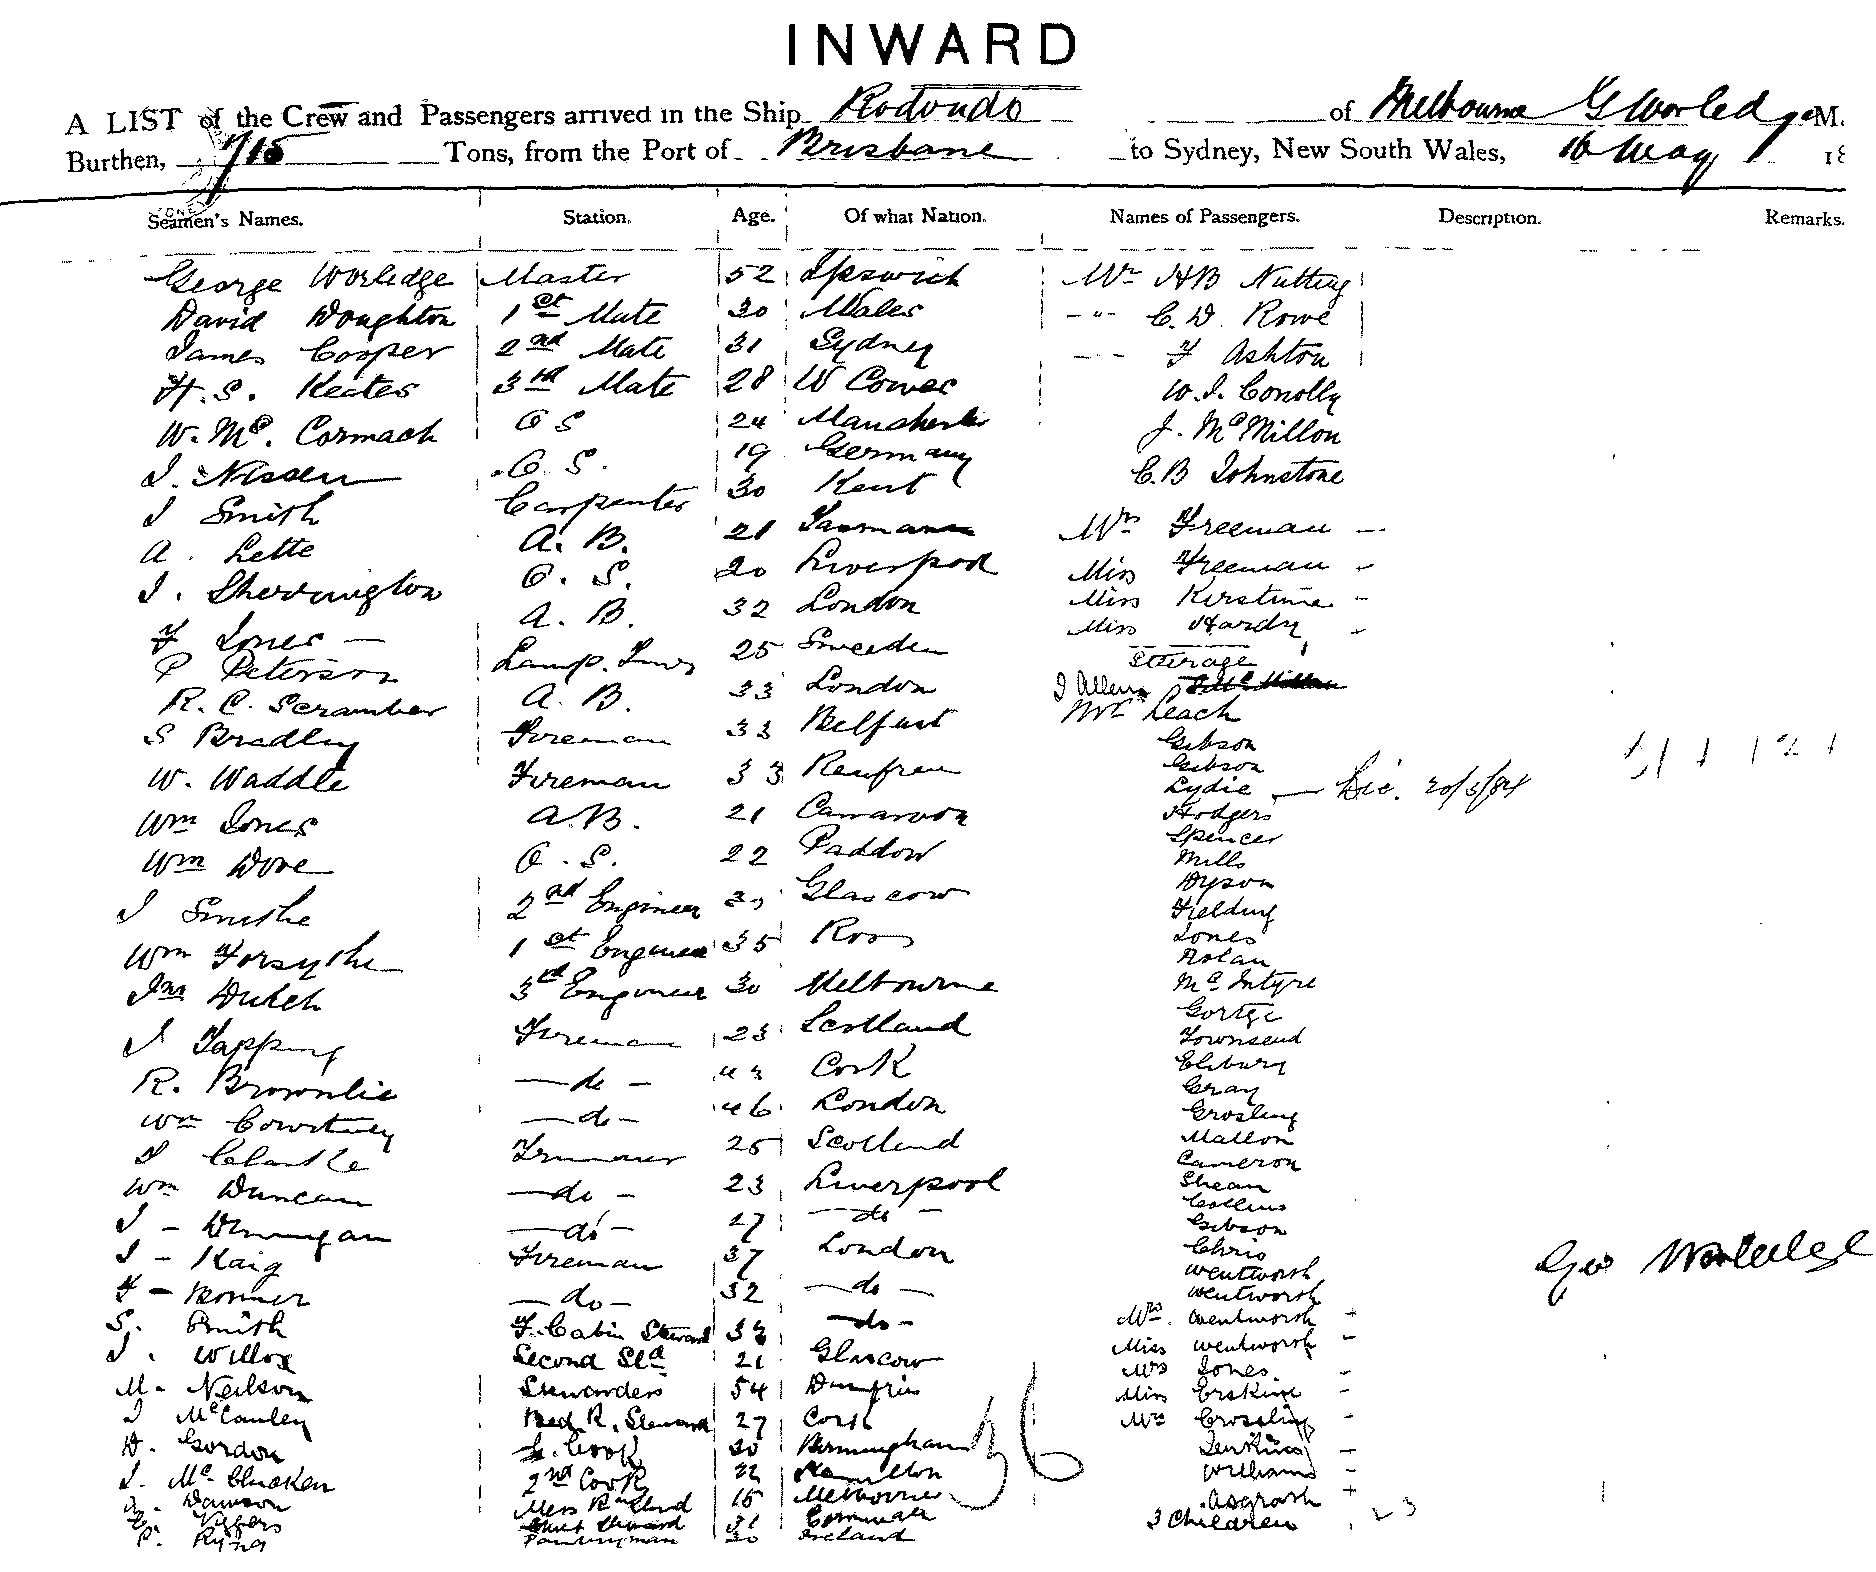 INWARD
A LIST of the Crew and Passengers arrived in the Ship Rodondo of Melbourne G Worledge M.
Burthen, 715 Tons, from the Port of Brisbane to Sydney, New South Wales, 16 May 18
Seamen's Names. Station. Age. Of what Nation. Names of Passengers. Description. Remarks.
George Worledge Master 52 Ipswich Mr HB Nutting
David Doughton 1st Mate 30 Wales -"- C. D. Rowe
James Cooper 2nd Mate 31 Sydney F Ashton
H. S. Keates 3rd Mate 28 W Cowes W. J. Conolly
W. Mc. Cormack O S 24 Manchester J. McMillon
J. Nissen O. S. 19 Germany C. B Johnstone
J Smith Carpenter 30 Kent
A. Lette A. B. 21 Mrs Freeman
J. Sherrington O. S. 20 Liverpool Miss Freeman
F Jones A. B. 32 London Miss Kirstine
P Peterson Lamp. 25 Sweeden Miss Hardy
Steerage
R. C. Scramber A. B. 33 London J Allen
S Bradley Fireman 33 Belfast Leach
W. Waddle Fireman 33 Renfrew Gibson
Gibson
Lydie 20/5/84
Wm Jones A.B. 21 Carnarvon Hodgers
Spencer
Wm Dove O. S. 22 Mills
Dyson
J Smithe 2nd Engineer Glascow Fielding
Wm Forsythe 1st Engineer 35 Ross Jones
Nolan
Jas 3rd Engineer 30 Melbourne McIntyre
J Tapping Fireman 23 Scotland
Townsend
R. Brownlie do 43 Cork
Gray
Wm Courtney do 46 London Grosling
J Clarke Trimmer 25 Scotland Mallon
Cameron
Wm Duncan do 23 Liverpool Shean
Collins
J - Dunnigan do 27 do Gibson
J - Haig Fireman 37 London Chris
Wentworth
F - Bonner do 32 do Wentworth
S. Smith F. Cabin Steward 33 do Mrs. Wentworth
J. Willox Second Std 21 Glascow Miss Wentworth
Geo Worledge
Mrs Jones
M. Neilson Stewardess 54 Dumfries Miss Erskine
J McCauley Bed R. Steward 27 Cork Mrs Crossling
D. Gordon Cook 30 Birmingham Jenkins
J. McClucken 2nd Cook 22 Hamilton Williams
Dawson Mess Rm 15 Melbourne
Vipers Steward 31 Cornwall 3 Children
P. Ryna Pantryman 30 Ireland
36